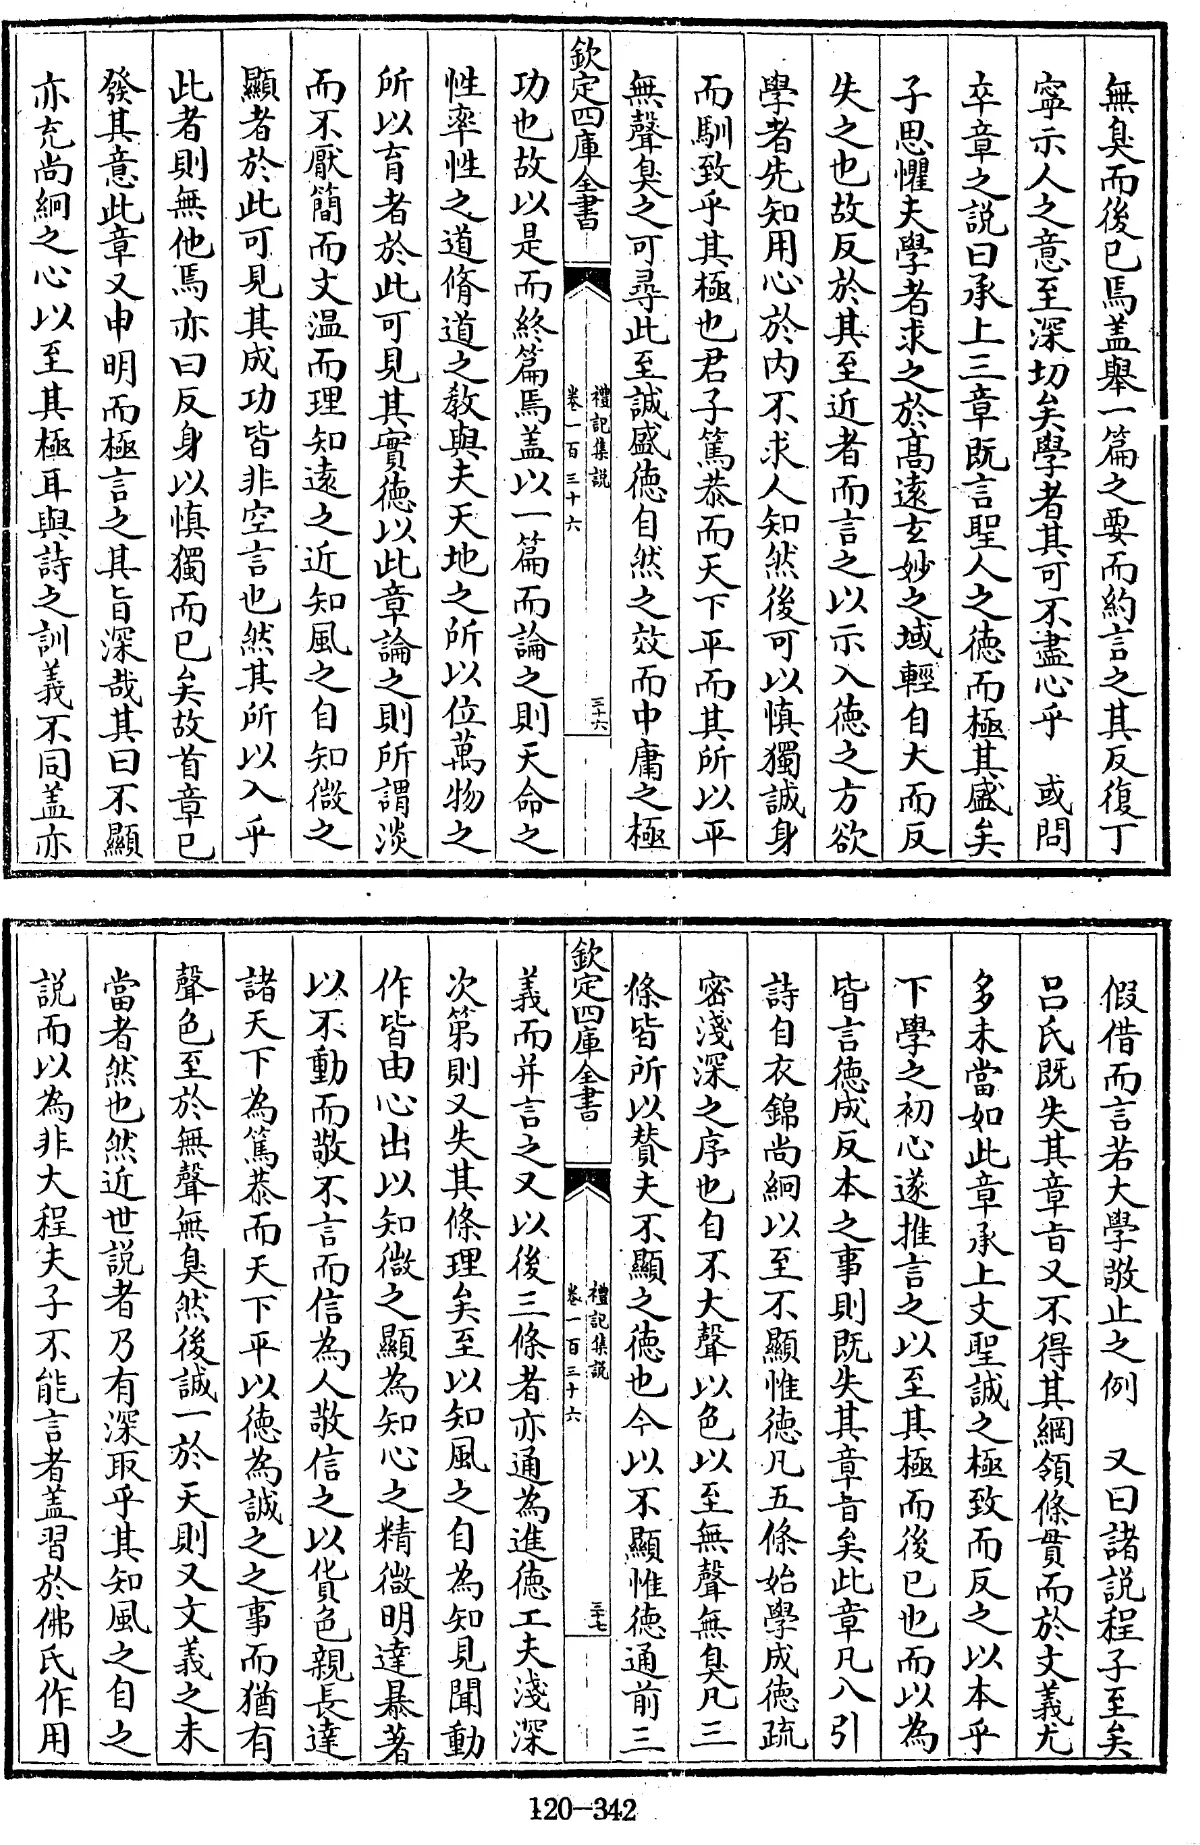 無臭而後已焉盖舉一篇之要而約言之其反復丁
寧示人之意至深切矣學者其可不盡心乎　或問
卒章之説曰承上三章既言聖人之徳而極其盛矣
子思懼夫學者求之於髙遠玄妙之域輕自大而反
失之也故反於其至近者而言之以示入徳之方欲
學者先知用心於内不求人知然後可以慎獨誠身
而馴致乎其極也君子篤恭而天下平而其所以平
無聲臭之可尋此至誠盛徳自然之效而中庸之極
欽定四庫全書
禮記集説
卷一百三十六
三十六
功也故以是而終篇焉盖以一篇而論之則天命之
性率性之道脩道之教與夫天地之所以位萬物之
所以育者於此可見其實徳以此章論之則所謂淡
而不厭簡而文温而理知遠之近知風之自知微之
顯者於此可見其成功皆非空言也然其所以入乎
此者則無他焉亦曰反身以慎獨而已矣故首章已
發其意此章又申明而極言之其旨深哉其曰不顯
亦充尚絅之心以至其極耳與詩之訓義不同盖亦
假借而言若大學敬止之例　又曰諸説程子至矣
吕氏既失其章旨又不得其綱領條貫而於文義尤
多未當如此章承上文聖誠之極致而反之以本乎
下學之初心遂推言之以至其極而後已也而以為
皆言徳成反本之事則既失其章旨矣此章凡八引
詩自衣錦尚絅以至不顯惟徳凡五條始學成徳疏
密淺深之序也自不大聲以色以至無聲無臭凡三
條皆所以賛夫不顯之徳也今以不顯惟徳通前三
欽定四庫全書
禮記集説
卷一百三十六
三十七
義而并言之又以後三條者亦通為進徳工夫淺深
次第則又失其條理矣至以知風之自為知見聞動
作皆由心出以知微之顯為知心之精微明達暴著
以不動而敬不言而信為人敬信之以貨色親長達
諸天下為篤恭而天下平以徳為誠之之事而猶有
聲色至於無聲無臭然後誠一於天則又文義之未
當者然也然近世説者乃有深取乎其知風之自之
説而以為非大程夫子不能言者盖習於佛氏作用
120-342